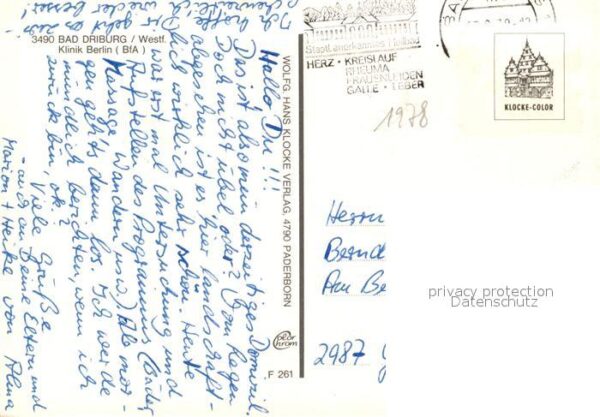 3490 BAD DRIBURG / Westf.
Klinik Berlin ( BfA )
Hallo Du !!!
Das ist also mein derzeitiges Domizil.
Doch nicht übel, oder? Vom Regen
abgesehen ist es hier landschaft-
lich wirklich sehr schön. Heute
war erst mal Untersuchung und
Aufstellen des Programms (Bäder,
Massage, Wandern usw.) Ab mor-
gen geht's dann los. Ich werde
mündlich berichten, wenn ich
zurück bin, ok?
Viele Grüße
- auch an Deine Eltern und
Marion + Heike von
Ich hoffe,
Dir geht es
wieder besser!
WOLFG. HANS KLOCKE VERLAG, 4790 PADERBORN
F 261
Staatl. anerkanntes Heilbad
HERZ · KREISLAUF
RHEUMA
FRAUENLEIDEN
GALLE · LEBER
1978
KLOCKE-COLOR
Herrn
Bernd
Am Be
2987
privacy protection
Datenschutz